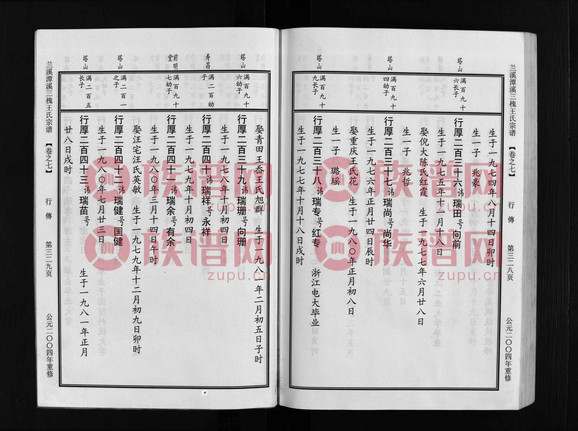 兰溪潭溪三槐王氏宗谱
【卷之七】
行傳
第三二八页
公元二〇〇四年重修
塔山
满百九十
六长子
生于一九七四年八月十四日卯时
生一子 兆豪
行厚二百三十六讳瑞田号向前
生于一九七五年十一月十八日
娶倪大陈氏红霞 生于一九七七年六月廿八日
生一子 兆哲
塔山
满百九十
四幼子
行厚二百三十七讳瑞尚号尚华
生于一九七六年正月廿四日辰时
娶重庆王氏花 生于一九八〇年正月初八
生一子 璐瑶
塔山
满百九十
九长子
行厚二百三十八讳瑞专号红专
生于一九七七年十月十八日戌时
浙江电大毕业
塔山
满百九十
六幼子
娶青田王岙王氏旭群 生于一九八〇年二月初五日子时
行厚二百三十九讳瑞珊号向珊
生于一九七九年十月初八日
寿昌
满二百幼
子
行厚二百四十讳瑞祥号永祥
生于一九七九年十月初四日
前明堂
满百九十
七幼子
行厚二百四十一讳瑞余号有余
生于一九八〇年三月十四日午时
娶汪宅汪氏英敏 生于一九七九年十二月初九日卯时
塔山
满二百一
之子
行厚二百四十二讳瑞健号国健
生于一九八〇年七月十三日
塔山
满二百五
长子
行厚二百四十三讳瑞苗号
生于一九八一年正月
廿八日戌时
兰溪潭溪三槐王氏宗谱
【卷之七】
行傳
第三二九页
公元二〇〇四年重修
族谱网
zupu.cn
族谱网
zupu.cn